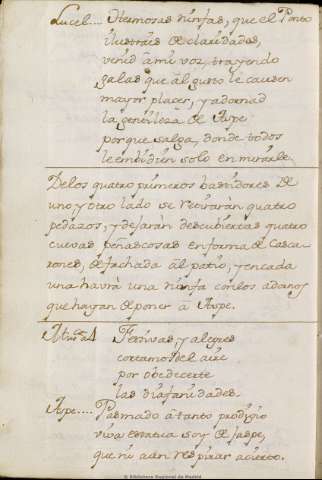 Lucel... Hermosas ninfas, que el Ponto
ilustrais de claridades,
venid â mi voz, trayendo
galas que âl gusto le causen
mayor placer, y adornad
la gentileza de Aspe
porque salga, donde todos
le embidien solo en mirarle,
Delos quatro primeros bastidores de
uno y otro lado se retirarán quatro
pedazos, y dejarán descubiertas quatro
cuevas peñascosas en forma de casca
rones, de fachada âl patio, y en cada
una havrá una ninfa con los adornos
que hayan de poner â Aspe.
4 Festivas, y alegres
cortamos del aire
por obedecerte
las diafanidades.
Aspe.... Pasmado â tanto prodigio
viva estatua soy de jaspe,
que ni aun respirar acierto.
© Biblioteca Nacional de Madrid